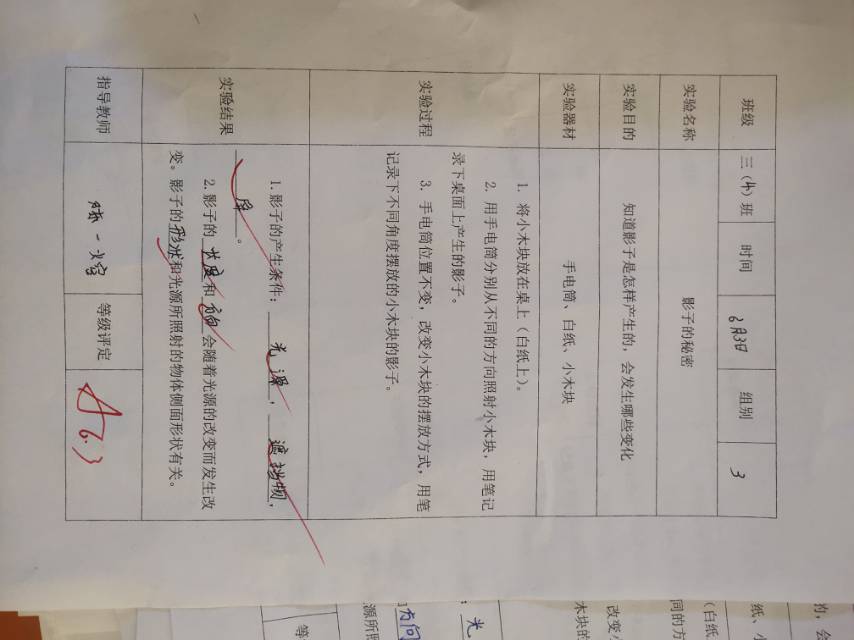 班级 三（4）班 时间 6月3日 组别 3
实验名称 影子的秘密
实验目的 知道影子是怎样产生的，会发生哪些变化
实验器材 手电筒、白纸、小木块
实验过程
1. 将小木块放在桌上（白纸上）。
2. 用手电筒分别从不同的方向照射小木块，用笔记
录下桌面上产生的影子。
3. 手电筒位置不变，改变小木块的摆放方式，用笔
记录下不同角度摆放的小木块的影子。
实验结果
1. 影子的产生条件：光源，遮挡物，
屏。
2. 影子的长度和方向会随着光源的改变而发生改
变。影子的形状和光源所照射的物体侧面形状有关。
指导教师 一 等级评定 A 6.3
的，会
纸、小
（白纸
同的方
改变小
木块的
：光
方向
源所照
等